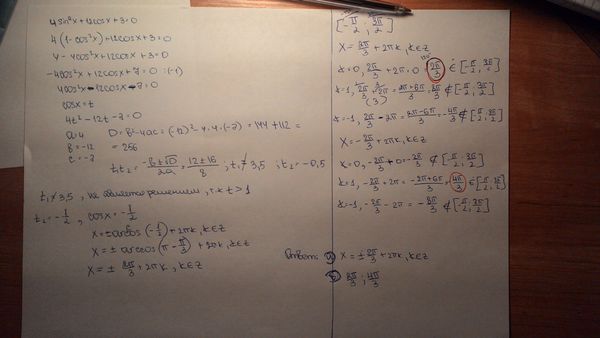 4sin²x+12cosx+3=0
4(1-cos²x)+12cosx+3=0
4-4cos²x+12cosx+3=0
-4cos²x+12cosx+7=0 :(-1)
4cos²x-12cosx-7=0
cosx=t
4t²-12t-7=0
a=4 D=b²-4ac=(-12)²-4·4·(-7)=144+112=
b=-12 =256
c=-7
t₁t₂=(-b±√D)/2a=(12±16)/8; t₁≠3,5; t₂=-0,5
t₁≠3,5, не является решением, т.к t>1
t₂=-1/2, cosx=-1/2
x=±arccos(-1/2)+2πk, k∈Z
x=±arccos(π-π/3)+2πk, k∈Z
x=±2π/3+2πk, k∈Z
[-π/2; 3π/2]
x=2π/3+2πk, k∈Z
k=0, 2π/3+2π·0=2π/3 ∈[-π/2; 3π/2]
k=1, 2π/3+2π=(2π+6π)/3=8π/3 ∉[-π/2; 3π/2]
(3)
k=-1, 2π/3-2π=(2π-6π)/3=-4π/3 ∉[-π/2; 3π/2]
x=-2π/3+2πk, k∈Z
k=0, -2π/3+0=-2π/3 ∉[-π/2; 3π/2]
k=1, -2π/3+2π=(-2π+6π)/3=4π/3 ∈[-π/2; 3π/2]
k=-1, -2π/3-2π=-8π/3 ∉[-π/2; 3π/2]
Ответ: а) x=±2π/3+2πk, k∈Z
б) 2π/3; 4π/3